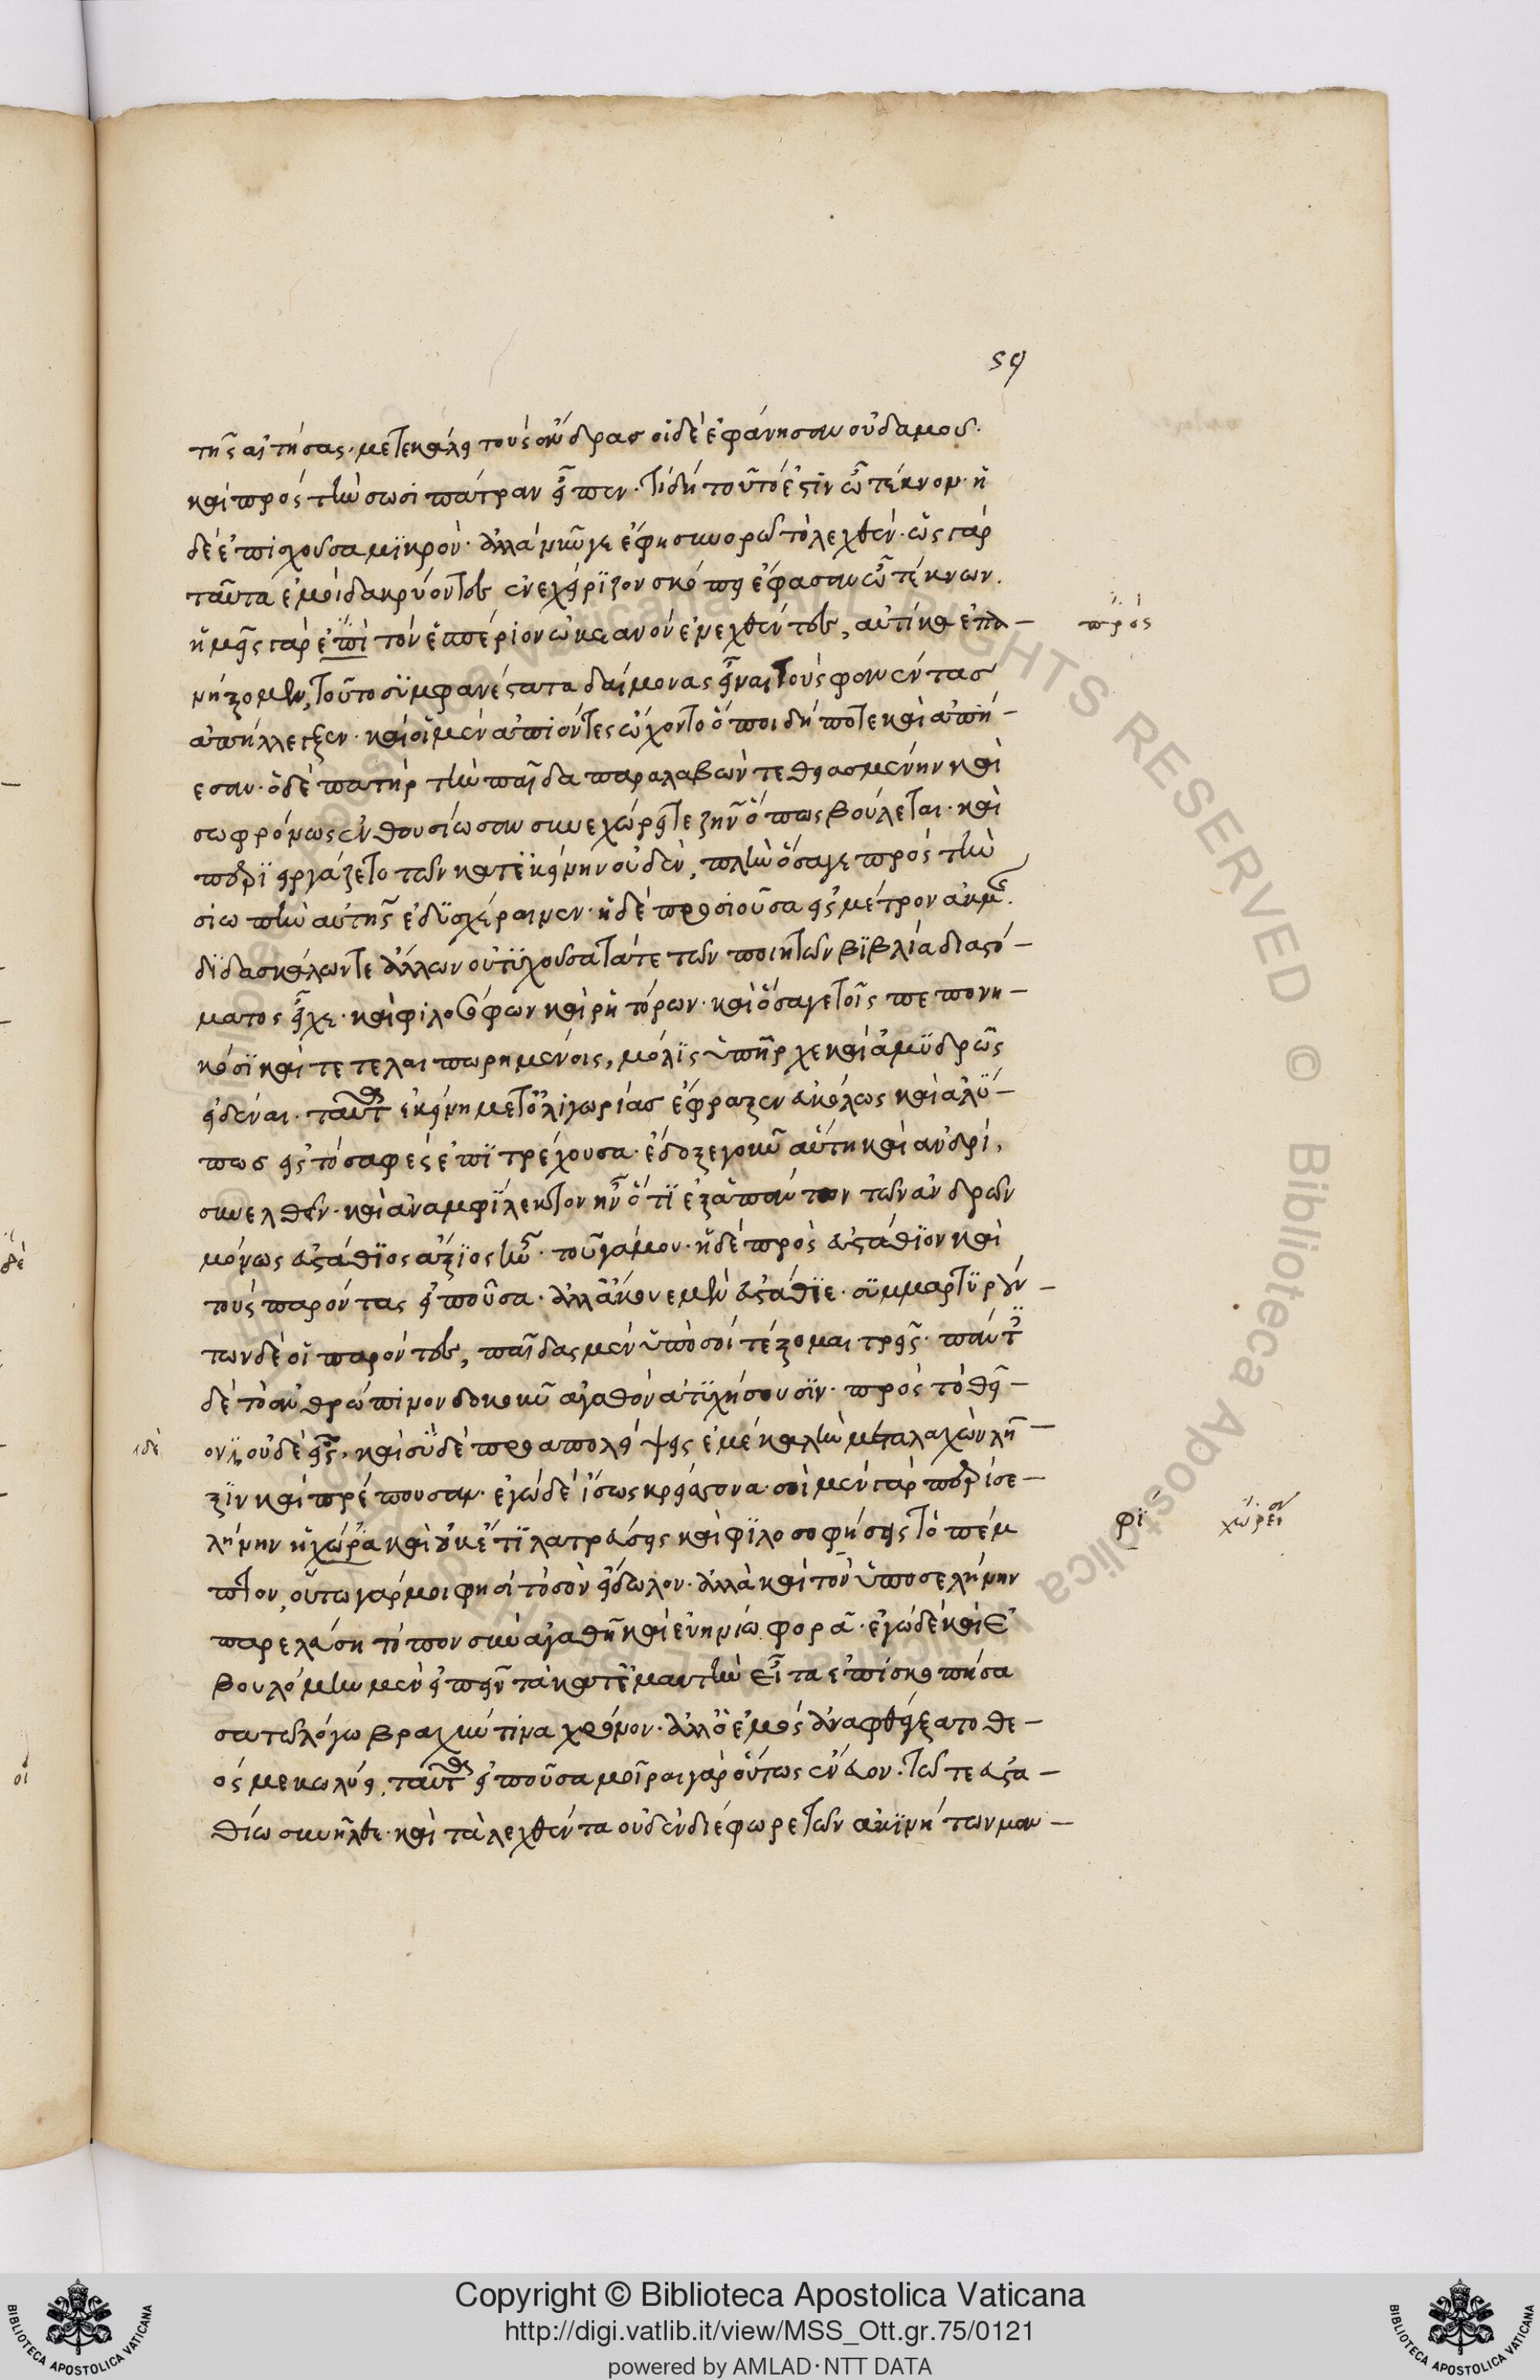 ϛϥ
τῆς αἰτήσας, μετεκάλει τοὺς ἄνδρας οἱ δὲ ἐφάνησαν οὐδαμοῦ.
καὶ πρὸς τὴν σωσιπάτραν εἶπεν. τί δὴ τοῦτό ἐστιν ὦ τέκνον. ἡ
δὲ ἐπισχοῦσα μικρὸν. ἀλλὰ νῦν γε ἔφη συνορῶ τὸ λεχθέν. ὡς γὰρ
ταῦτα ἐμοὶ δακρύοντες ἐνεχείριζον σκόπει ἔφασαν ὦ τέκνον.
ἡμεῖς γὰρ ἐπὶ τὸν ἑσπέριον ὠκεανὸν ἐνεχθέντες, αὐτίκα ἐπα-
πρὸς
νήξομεν, τοῦτο συμφανέστατα δαίμονας εἶναι τοὺς φανέντας
ἀπήλλεγξεν. καὶ οἱ μὲν ἀπιόντες ᾤχοντο ὅποι δήποτε καὶ ἀπή-
εσαν. ὁ δὲ πατὴρ τὴν παῖδα παραλαβὼν τεθειασμένην καὶ
σωφρόνως ἐνθουσίωσαν συνεχώρει τε ζῆν ὅπως βούλεται. καὶ
περιειργάζετο τῶν κατ' ἐκείνην οὐδὲν, πλὴν ὅσα γε πρὸς τὴν
σιωπὴν αὐτῆς ἐδυσχέραινεν. ἡ δὲ προσιοῦσα εἰς μέτρον ἀκμῆς.
διδασκάλων τε ἄλλων οὐ τυχοῦσα τά τε τῶν ποιητῶν βιβλία διὰ στό-
ματος εἶχε. καὶ φιλοσόφων καὶ ῥητόρων. καὶ ὅσα γε τοῖς πεπονη-
κόσι καὶ τεταλαιπωρημένοις, μόλις ὑπῆρχε καὶ ἀμυδρῶς
εἰδέναι. ταῦτα ἐκείνη μετ' ὀλιγωρίας ἔφραζεν εὐκόλως καὶ ἀλύ-
πως εἰς τὸ σαφὲς ἐπιτρέχουσα. ἔδοξε γοῦν αὐτῇ καὶ ἀνδρί,
συνελθεῖν. καὶ ἀναμφίλεκτον ἦν ὅτι ἐξ ἁπάντων τῶν ἀνδρῶν
μόνως εὐστάθιος ἄξιος ἦν. τοῦ γάμου. ἡ δὲ πρὸς εὐστάθιον καὶ
τοὺς παρόντας εἰποῦσα. ἀλλ' ἄκουε μὲν εὐστάθιε. συμμαρτυρούν-
των δὲ οἱ παρόντες, παῖδας μὲν ὑπὸ σοὶ τέξομαι τρεῖς. πάντες
δὲ τὸ ἀνθρώπινον δοκοῦν ἀγαθὸν ἀτυχήσουσιν. πρὸς τὸ θεῖ-
ον, οὐδὲ εἷς. καὶ σὺ δὲ προαπολείψεις ἐμὲ καλὴν μεταλαχὼν λῆ-
ιδὲ
ξιν καὶ πρέπουσαν. ἐγὼ δὲ ἴσως κρείσσονα. σοὶ μὲν γὰρ περὶ σε-
λήνην ἡ χώρα καὶ οὐκέτι λατρεύσεις καὶ φιλοσοφήσεις τὸ πέμ
φι χωρεί
πτον, οὕτω γάρ μοι φησὶ τὸ σὸν εἴδωλον. ἀλλὰ καὶ τὸν ὑπὸ σελήνην
παρελάσῃ τόπον σὺν ἀγαθῇ καὶ εὐηνίῳ φορᾷ. ἐγὼ δὲ καὶ ἐ
βουλόμην μὲν εἰπεῖν τὰ κατ' ἐμαυτὴν εἶτα ἐπισιωπήσα
σα τῷ λόγῳ βραχύν τινα χρόνον. ἀλλ' ὁ ἐμὸς ἀνεφθέγξατο θε-
ός με κωλύει, ταῦτα εἰποῦσα μοῖραι γὰρ οὕτως ἔνευον. τῷ τε εὐστα-
θίῳ συνῆλθε. καὶ τὰ λεχθέντα οὐδὲν διέφερε τῶν ἀκινήτων μαν-
Copyright © Biblioteca Apostolica Vaticana
http://digi.vatlib.it/view/MSS_Ott.gr.75/0121
powered by AMLAD·NTT DATA